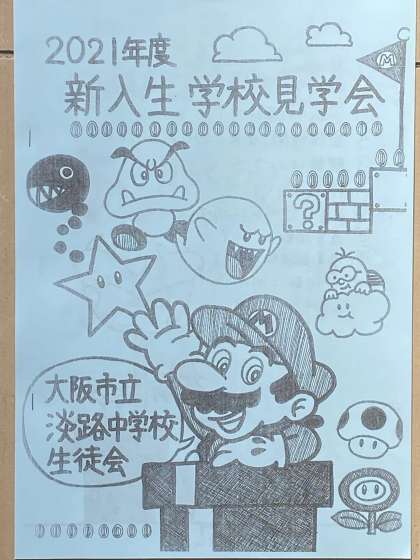 2021年度
新入生 学校見学会
M
?
M
大阪市立
淡路中学校
生徒会